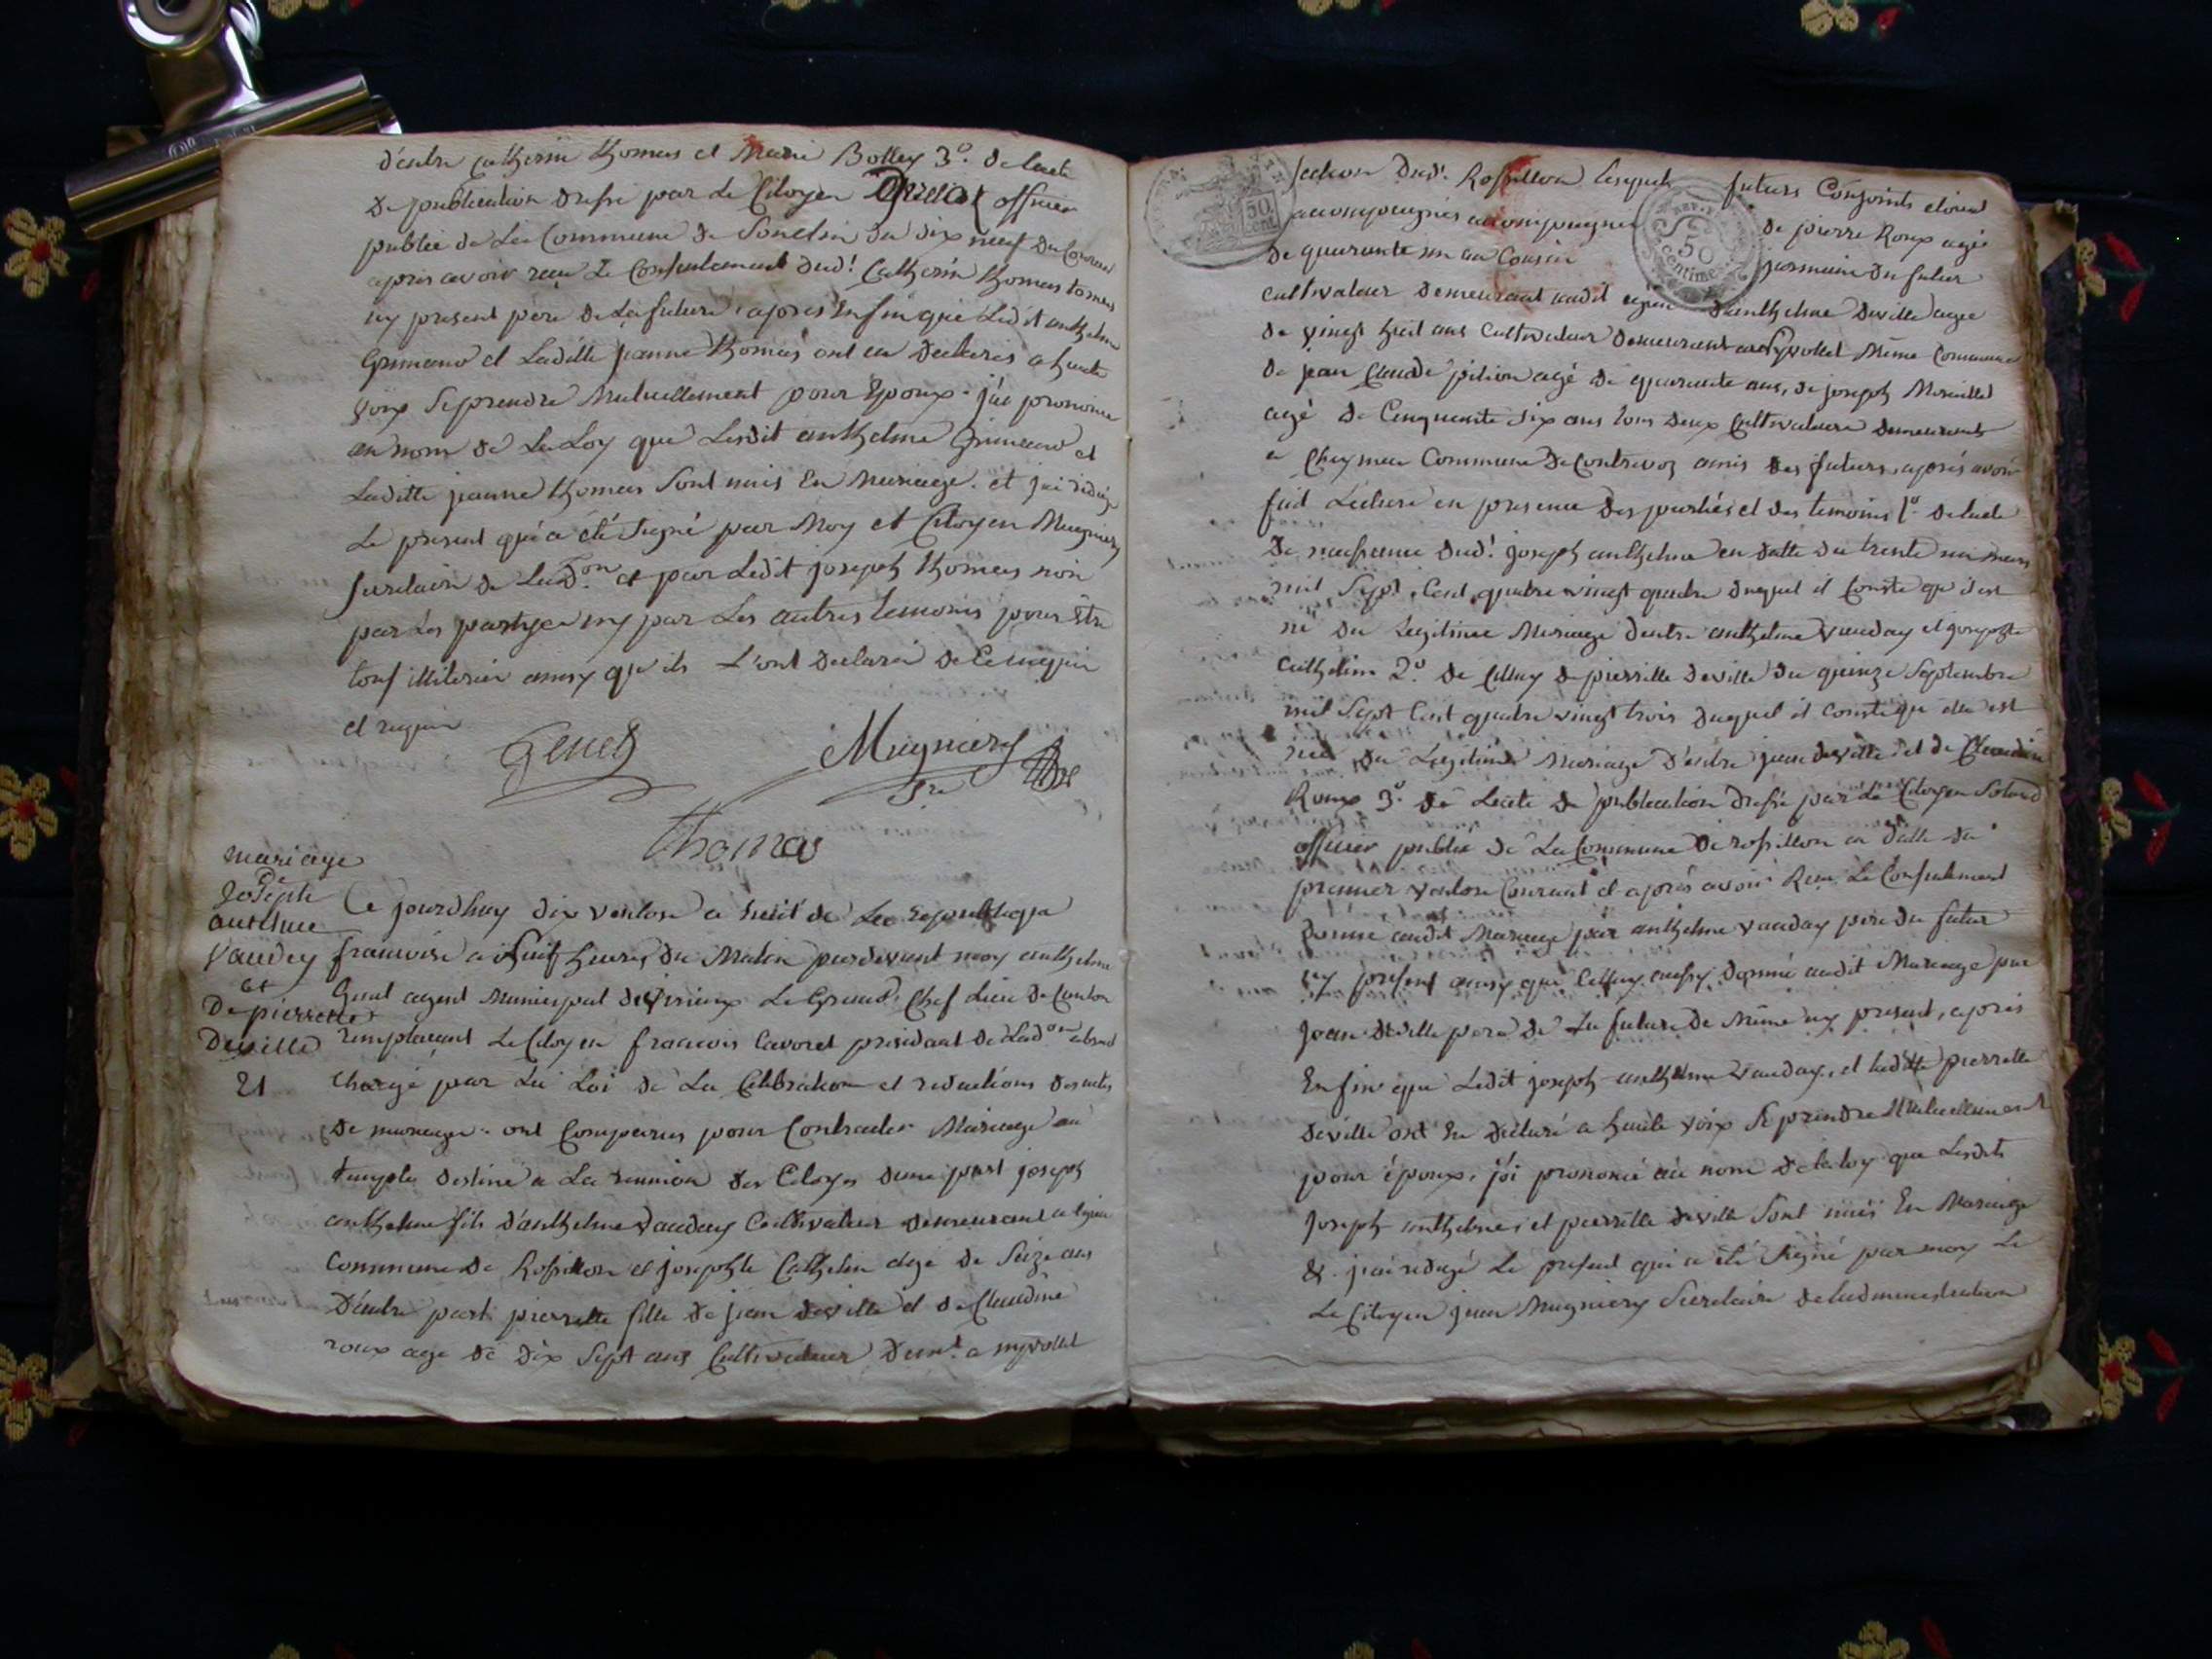 d'entre Catherin thomas et Marie Bolley 3º. de lacte
de publication dressé par Le Citoyen officier
public de La Commune de du dix neuf du Courant
apres avoir reçu Le Consentement dud! Catherin thomas
icy present pere de La future, apres Enfin que Ledit anthelme
Grimand et Laditte jeanne thomas ont eu declarés a haute
voix Se prendre Mutuellement pour Epoux. j'ai prononcé
au nom de La Loy que Lesdit anthelme Grimand et
Laditte jeanne thomas Sont unis En Mariage. et j'ai rédigé
Le present qui a été Signé par Moy et Citoyen Mugniery
Secretaire de Lad.on et par Ledit joseph thomas non
par Les partyes ny par Les autres temoins pour être
tous illiteres ainsy qu'ils L'ont declaré de Ce enquis
et requis
Genet
Mugniery
Sre
Thomas
mariage
Joseph
antelme
Vauday
et
De pierrette
Deville
21
Ce jourdhuy dix ventose a huit de La republique
francoise a huit heures du Matin pardevant moy anthelme
Genet agent Municipal de virieux Le Grand, Chef Lieu de Canton
remplacant Le Citoyen francois Cavoret president de Lad.on absent
Chargé par La Loi de La Celebration et redactions des actes
de mariage. ont Comparus pour Contracter Mariage au
temple destiné a La reunion des Citoyens dune part joseph
anthelme fils d'anthelme vauday Cultivateur demeurant a
Commune de Rossillon et josephte Cathelin agé de Seize ans
D'autre part pierrette fille de jean deville et de Claudine
roux age de dix Sept ans Cultivateur demt. a
Section dud!. Rossillon Lesquels futurs Conjoints etoient
accompagnés accompagnés de pierre Roux agé
de quarante un an Cousin germain du futur
Cultivateur demeurant audit d'anthelme deville agé
de vingt huit ans Cultivateur demeurant Même Commune
de jean Claude pition agé de quarante ans, de joseph
agé de Cinquante Six ans tous deux Cultivateurs demeurants
a Cheymieu Commune de Contrevoz amis des futurs, aprés avoir
fait Lecture en presence des parties et des temoins 1º. de lacte
de naissance dud! joseph anthelme en datte du trente un mars
mil Sept Cent quatre vingt quatre duquel il Conste qu'il est
né du Legitime Mariage d'entre anthelme vauday et josephte
Cathelin 2º. de Celluy de pierrette deville du quinze Septembre
mil Sept Cent quatre vingt trois duquel il conste qu'elle est
née du Legitime Mariage d'entre jean deville et de Claudine
Roux 3º. de Lacte de publication dressé par Le Citoyen
officier public de La Commune de rossillon en datte du
premier ventose Courant et aprés avoir Recu Le Consentement
donné audit Mariage par anthelme vauday pere du futur
icy present ainsy que Celluy aussy donné audit Mariage par
Jean deville pere de La future de Même icy present, aprés
Enfin que Ledit joseph anthelme vauday, et laditte pierrette
deville ont Eu déclaré a haute voix Se prendre Mutuellement
pour époux, j'ai prononcé au nom de la loy que Lesdits
Joseph anthelme, et pierrette deville Sont unis En Mariage
& j'ai redigé Le present qui a été Signé par moy Le
Le Citoyen jean Mugniery Secretaire de Ladministration
50
cent
REP. F
50
centimes